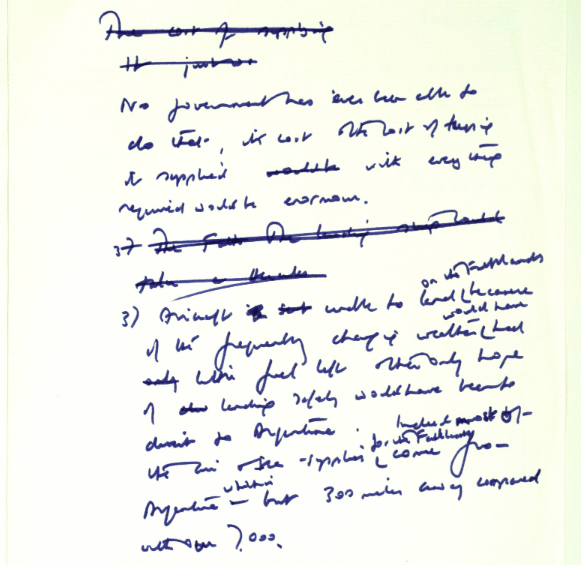 The cost of supplying
it just was
No government has ever been able to
do that, the cost of the cost of keeping
it supplied would be with everything
required would be enormous.
3) The Falk The landing ship could
take a
3) Aircraft is unable to land on the Falklands because
of the frequently changing weather would have had
only little fuel left & their only hope
of landing safely would have been to
divert to Argentina. Indeed most of
the air & sea supplies for the Falklands come from
Argentina which is but 300 miles away compared
with our 7,000.